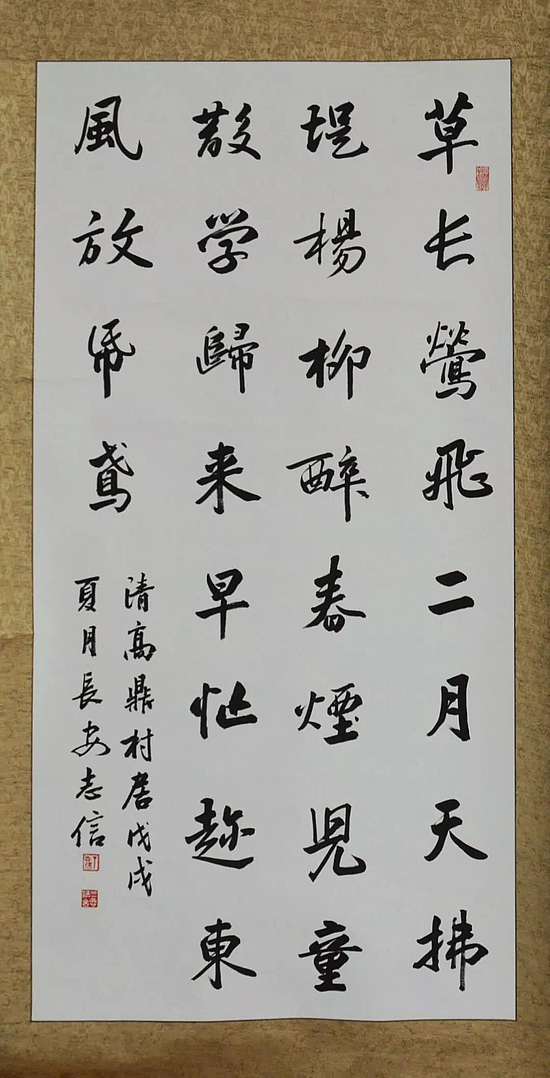 草长鶯飛二月天拂
堤楊柳醉春煙児童
散学歸来早忙趂東
風放紙鳶
清高鼎村居戊戌
夏月長安志信